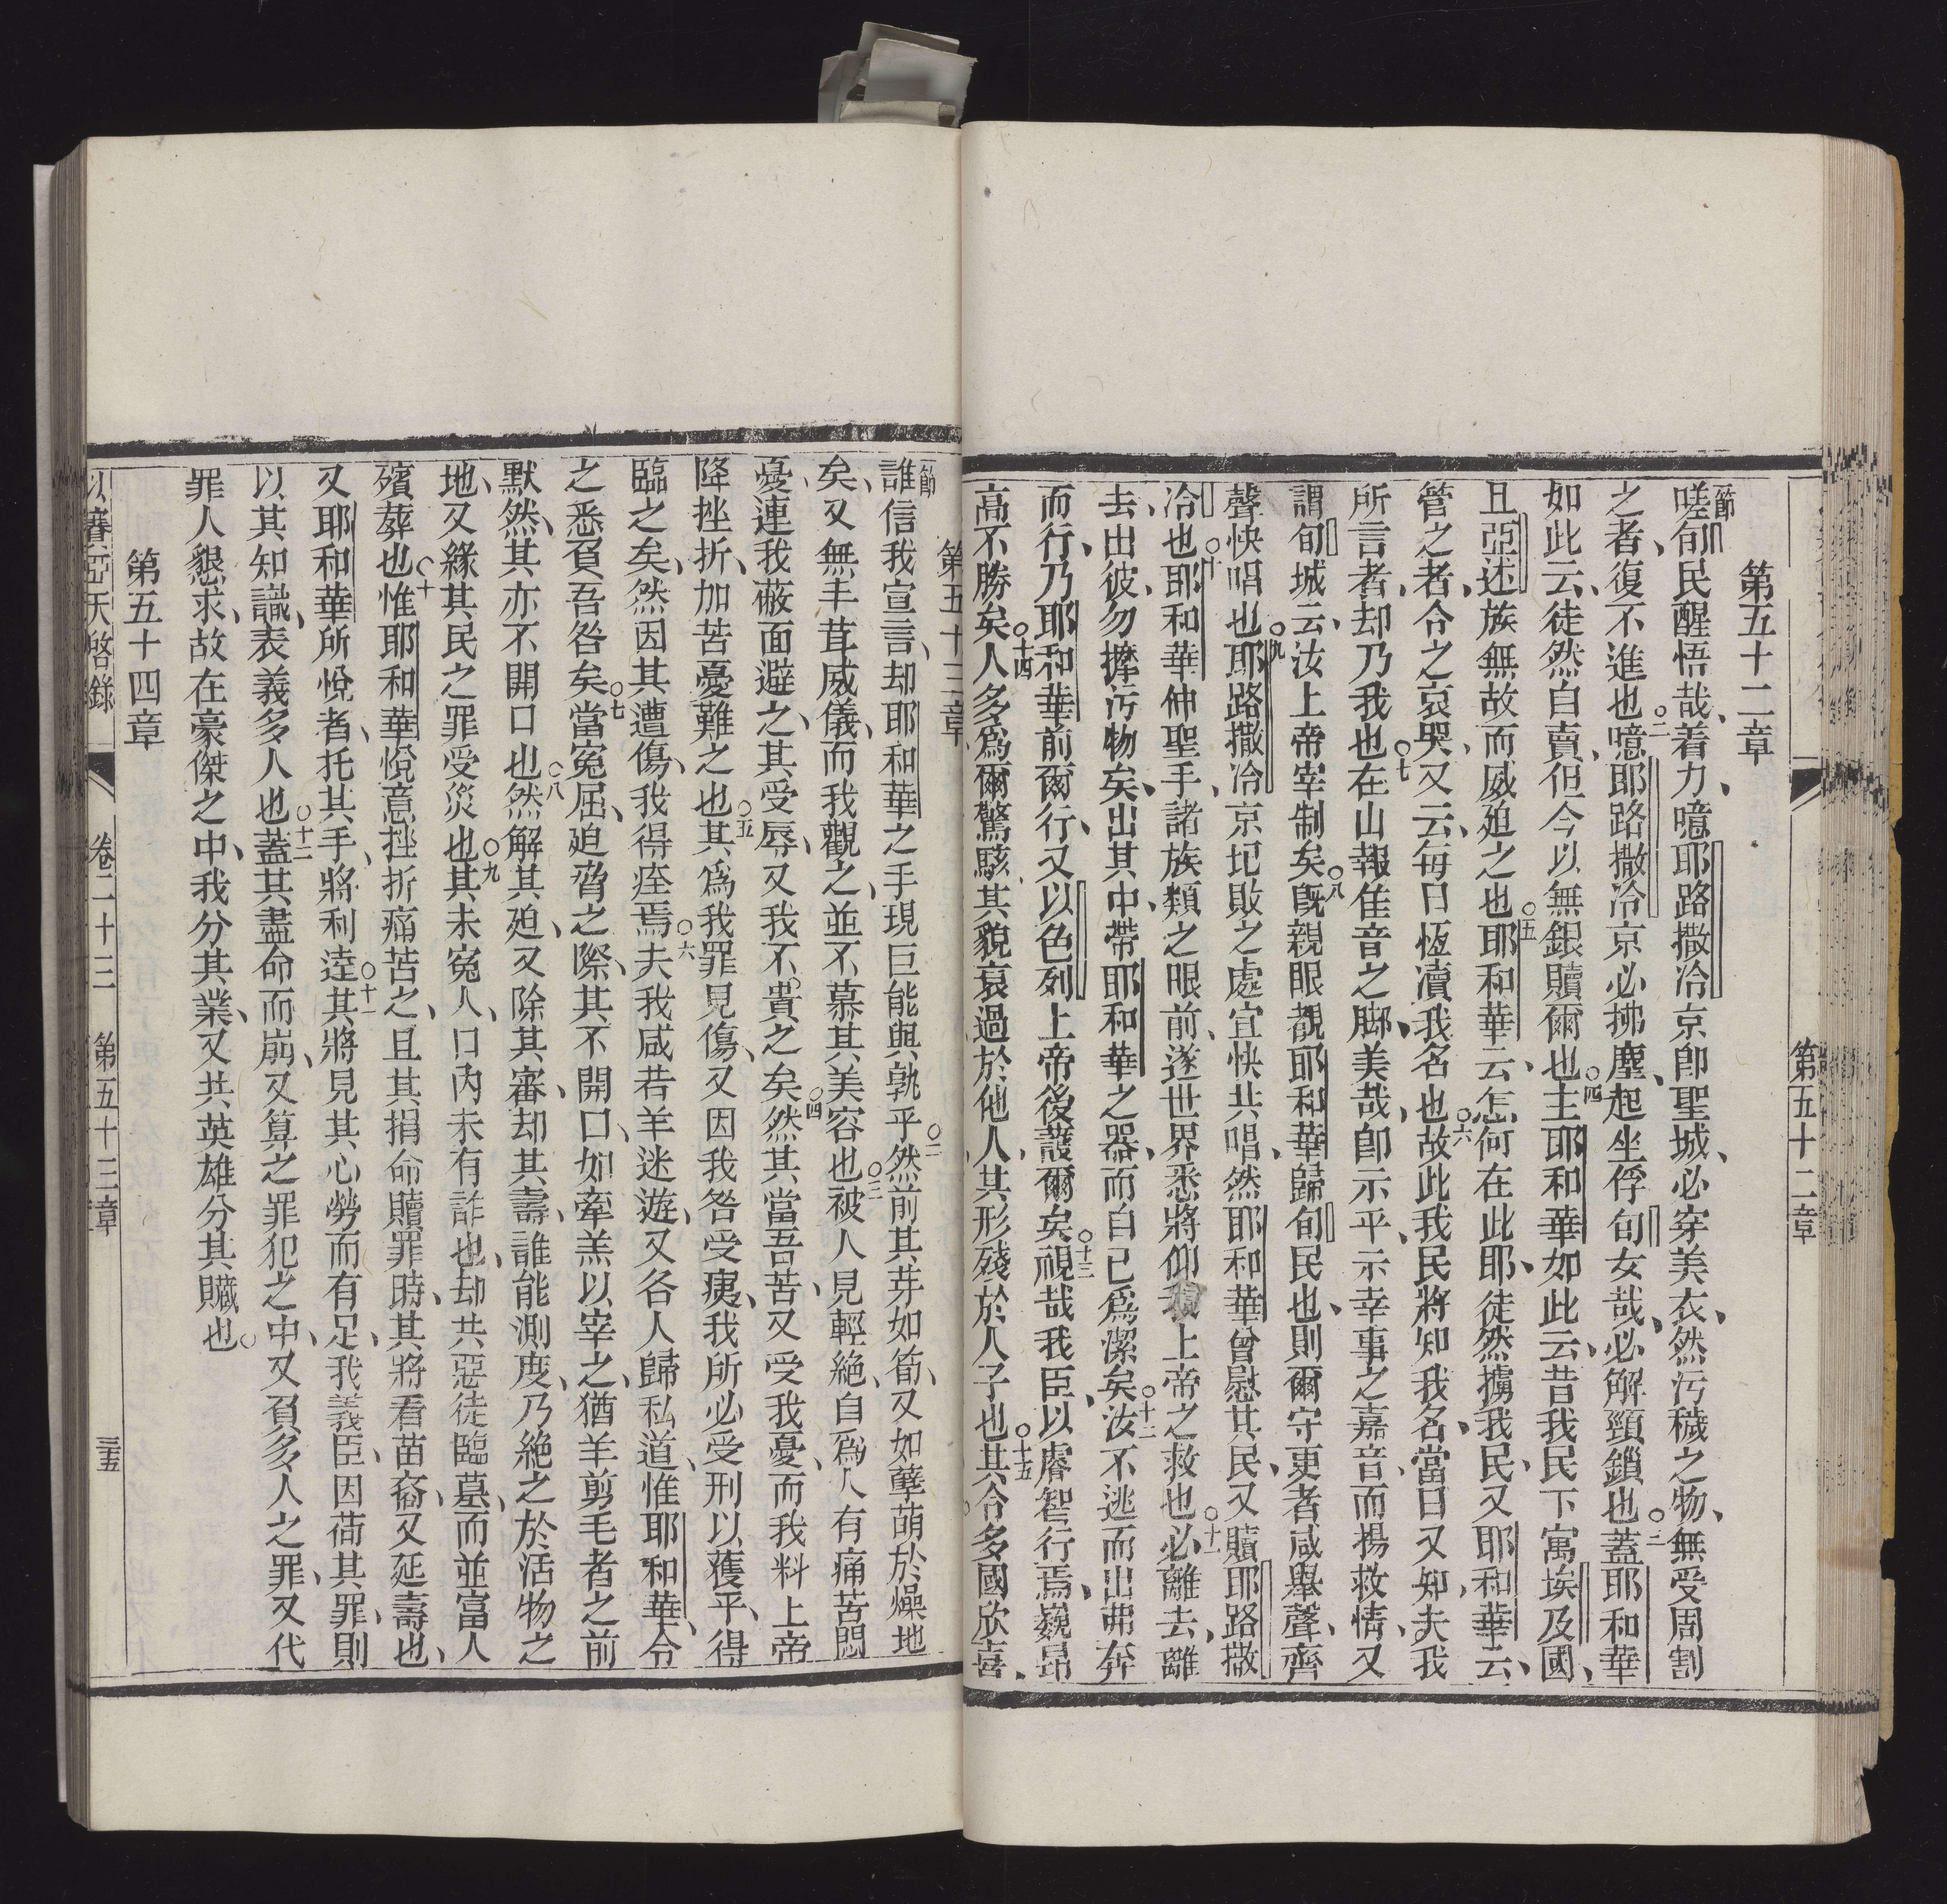 第五十二章
第五十二章
一節嗟旬民醒悟哉、着力、噫耶路撒冷京卽聖城、必穿美衣、然污穢之物、無受周割
之者、復不進也○二噫耶路撒冷京必拂塵、起坐俘旬女哉、必解頸鎖也○三蓋耶和華
如此云、徒然自賣、但今以無銀贖爾也○四主耶和華如此云、昔我民下寓埃及國、
且亞述族無故而威廹之也○五耶和華云、怎何在此耶、徒然擄我民、又耶和華云、
管之者、令之哀哭、又云、每日恆瀆我名也○六故此我民將知我名、當日又知、夫我
所言者、却乃我也○七在山報佳音之脚、美哉、卽示平、示幸事之嘉音、而揚救情、又
謂旬城云、汝上帝宰制矣○八旣親眼覩耶和華歸旬民也、則爾守更者咸舉聲、齊
聲快唱也○九耶路撒冷京圯敗之處宜快共唱、然耶和華曾慰其民、又贖耶路撒
冷也○十耶和華伸聖手、諸族類之眼前、遂世界悉將仰我上帝之救也○十一必離去、離
去、出彼、勿摩污物矣、出其中、帶耶和華之器、而自已爲潔矣○十二汝不逃而出弗奔
而行、乃耶和華前爾行、又以色列上帝後護爾矣○十三視哉我臣、以睿智行焉、巍昂
高不勝矣○十四人多爲爾驚駭其貌衰過於他人、其形殘於人子也○十五其令多國欣喜、
第五十三章
一節誰信我宣言、却耶和華之手現巨能與孰乎○二然前其芽如筍、又如孽萌於燥地
矣、又無丰茸威儀、而我觀之、並不慕其美容也○三被人見輕絶、自爲人有痛苦悶
憂、連我蔽面避之、其受辱、又我不貴之矣○四然其當吾苦、又受我憂、而我料上帝
降挫折、加苦憂難之也○五其爲我罪見傷、又因我咎受痍、我所必受刑以獲平、得
臨之矣、然因其遭傷、我得痊焉○六夫我咸若羊迷遊、又各人歸私道、惟耶和華令
之悉負吾咎矣○七當寃屈、廹脅之際、其不開口、如牽羔以宰之、猶羊剪毛者之前
默然、其亦不開口也○八然解其廹、又除其審、却其壽、誰能測度、乃絶之於活物之
地、又緣其民之罪受災也○九其未寃人、口內未有詐也、却共惡徒臨墓、而並富人
殯葬也○十惟耶和華悅意挫折痛苦之、且其捐命贖罪時、其將看苗裔、又延壽也、
又耶和華所悅者、托其手、將利逹○十一其將見其心勞而有足、我義臣、因荷其罪、則
以其知識、表義多人也○十二蓋其盡命而崩、又算之罪犯之中、又負多人之罪、又代
罪人懇求、故在豪傑之中、我分其業、又共英雄分其贓也○
第五十四章
以賽亞天啓錄 卷二十三 第五十三章 三五